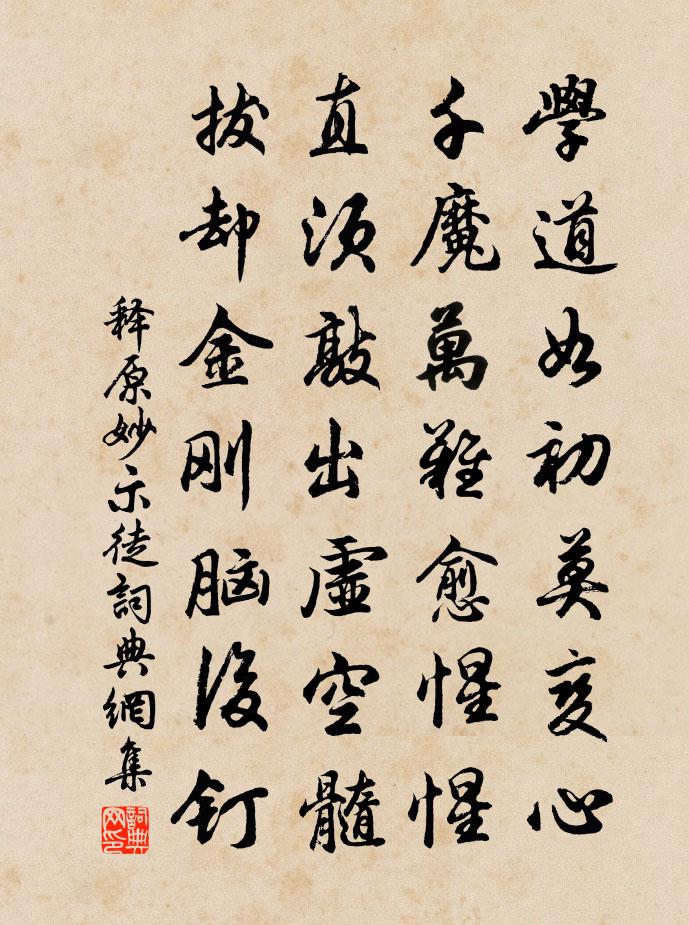 學道如初莫变心
千魔萬難愈惺惺
直須敲出虛空髓
拔却金刚脑後钉
释原妙示徒詞典網集
詞典网印